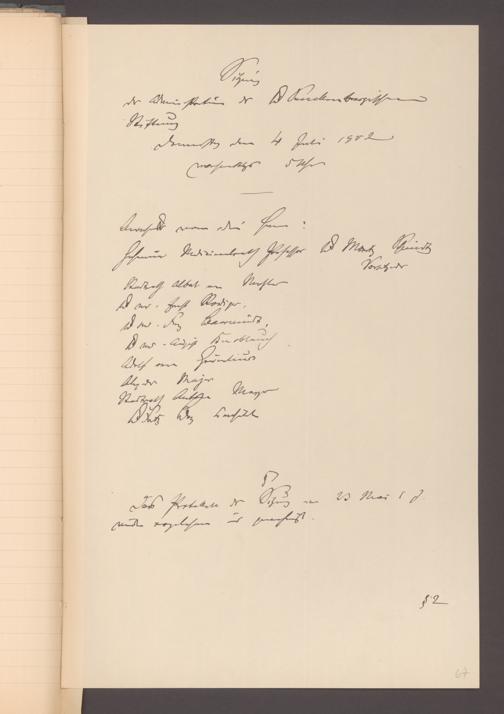 Sitzung
der Administration der Dr Senckenbergischen
Stiftung
Donnerstag den 4 Juli 1902
nachmittags 5 Uhr
Anwesend waren die Herren:
Geheimer Medizinalrath Professor Dr Moritz Schmidt
Vorsitzender
Stadtrath Albert von Metzler
Dr med. Ernst Roediger.
Dr med.
Dr med. August Knoblauch
Adolf von
Alexander Majer
Stadtrath Anton Meyer
Dr
§
Das Protokoll der Sitzung vom 23 Mai
wurde vorgelesen und genehmigt.
§ 2
67